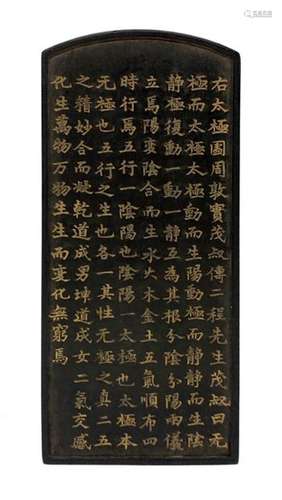 右太極圖周敦實茂叔傳二程先生茂叔曰无
極而太極太極動而生陽動極而静静而生陰
静極復動一動一静互為其根分陰分陽兩儀
立焉陽變陰合而生水火木金土五氣順布四
時行焉五行一陰陽也陰陽一太極也太極本
无極也五行之生也各一其性无極之真二五
之精妙合而凝乾道成男坤道成女二氣交感
化生萬物万物生生而變化無窮焉